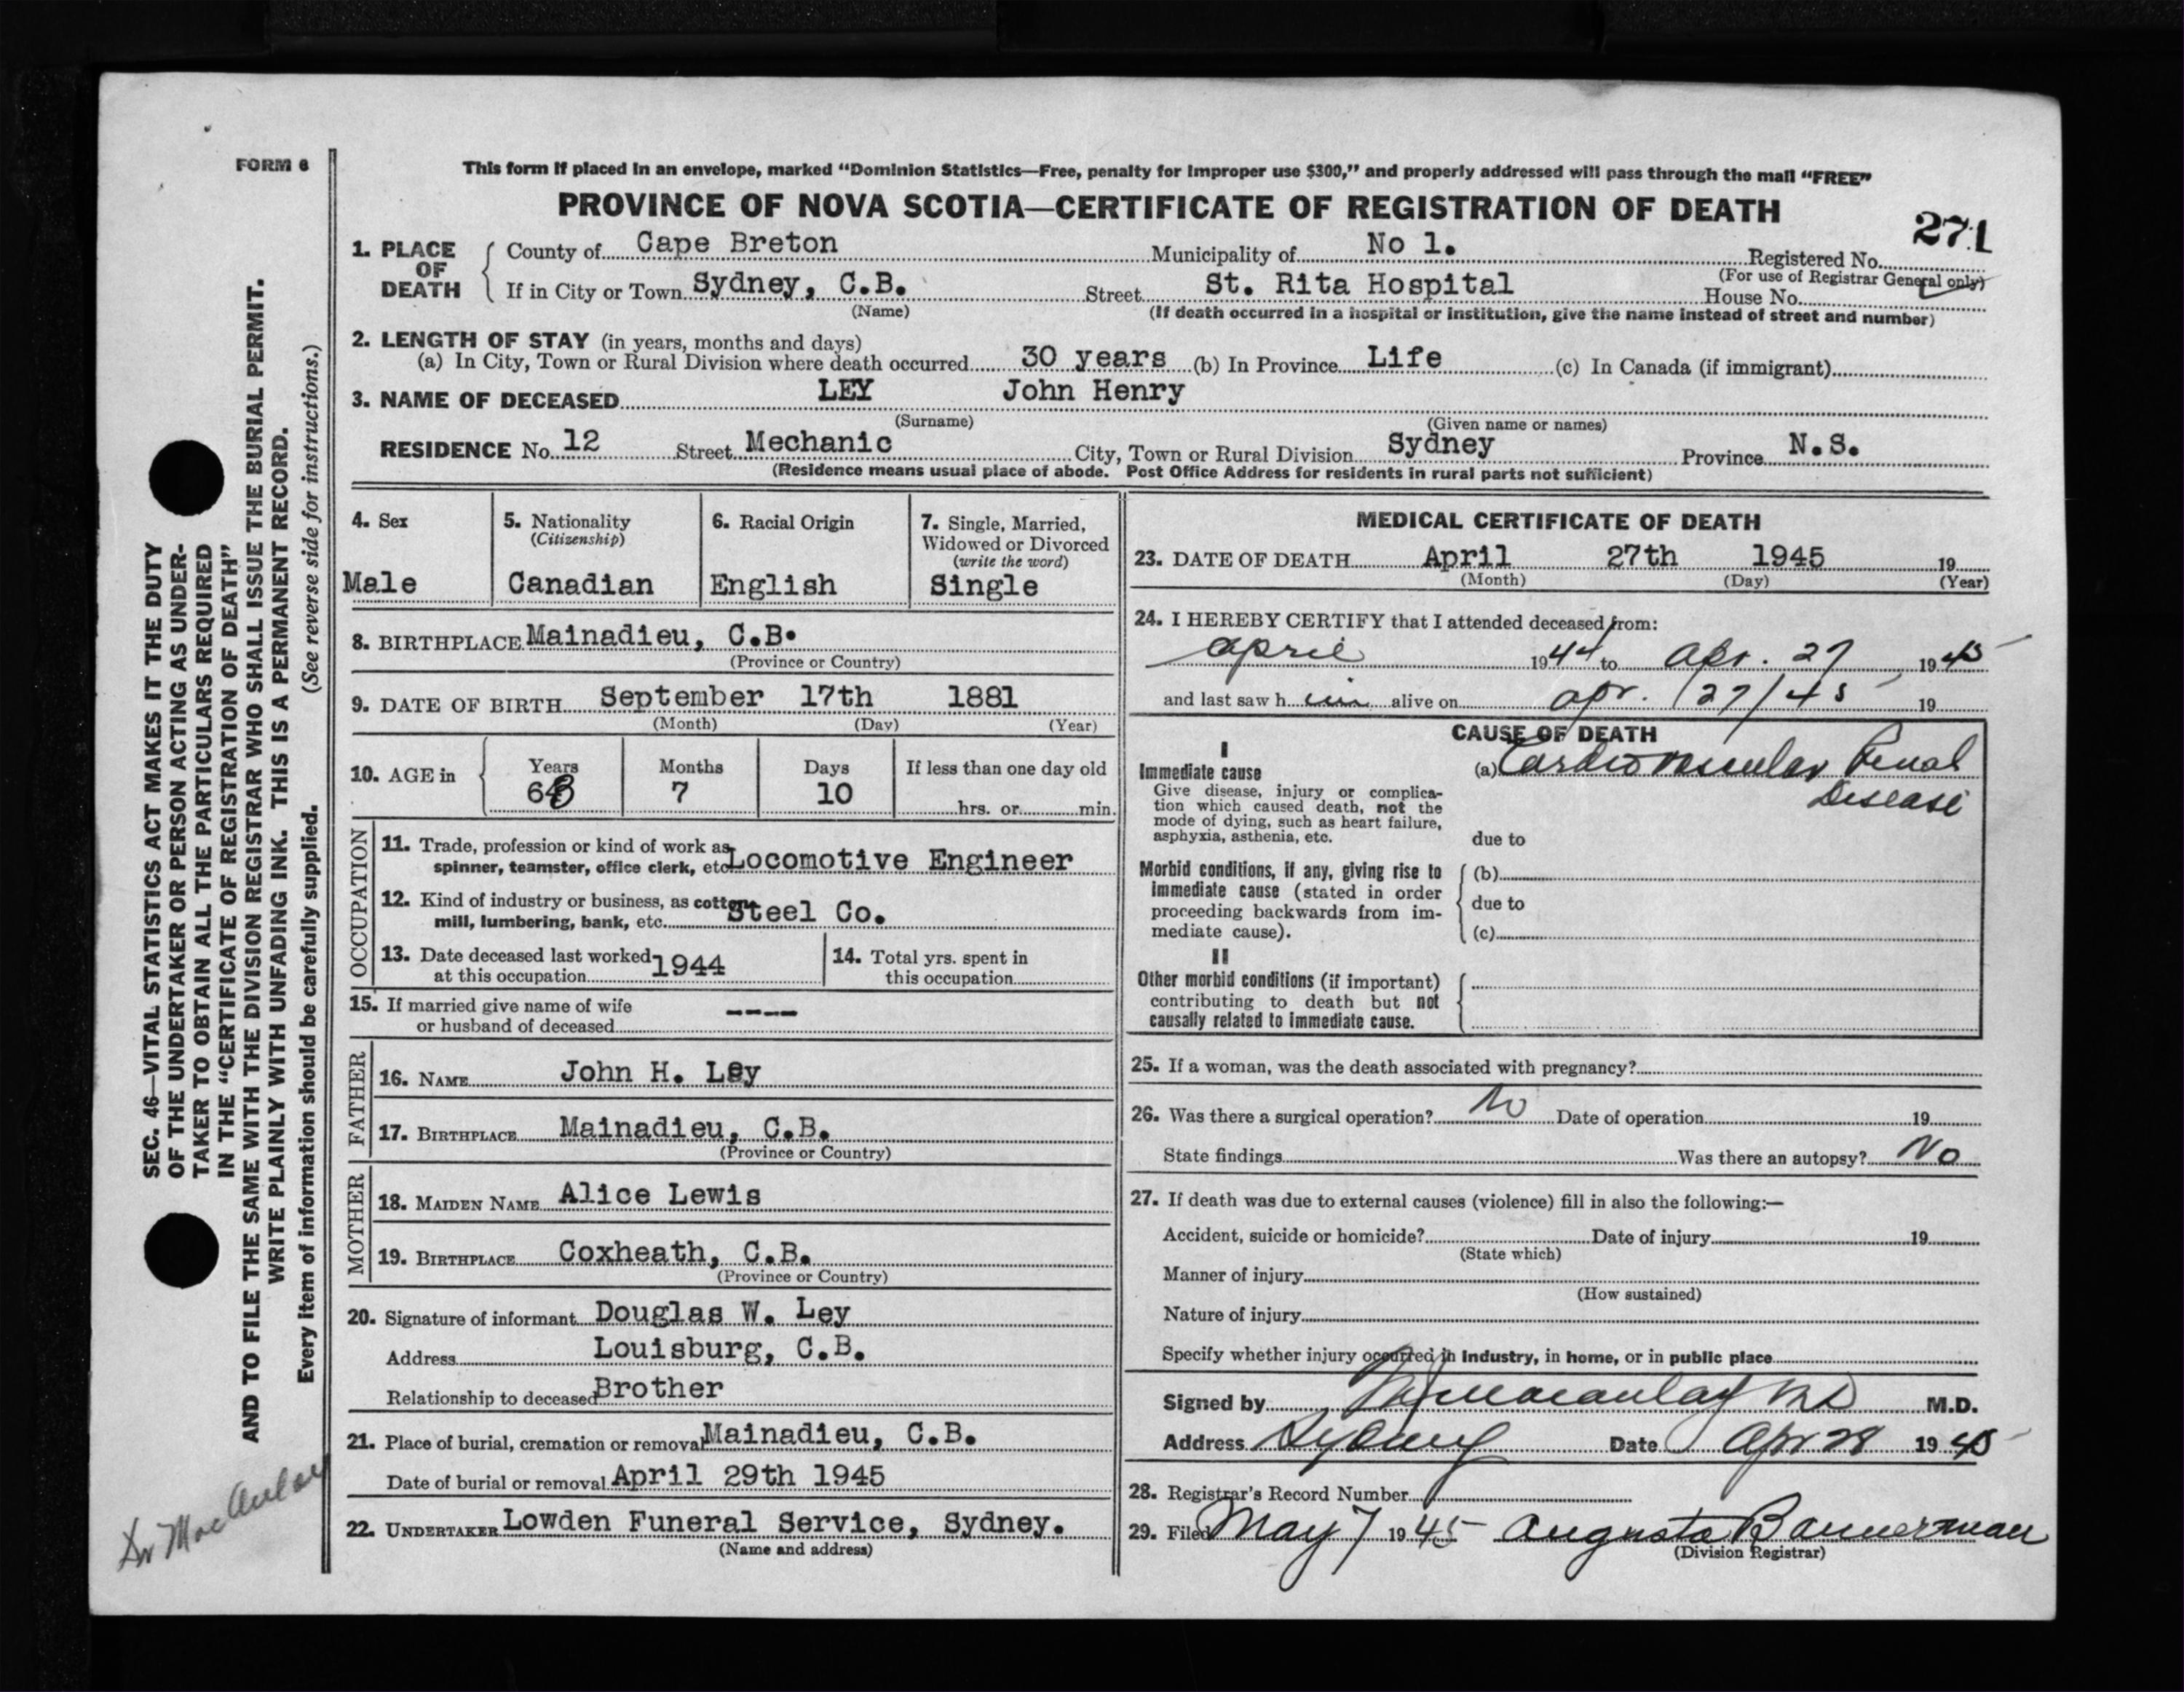 FORM 6
This form if placed in an envelope, marked "Dominion Statistics—Free, penalty for improper use $300," and properly addressed will pass through the mail "FREE"
PROVINCE OF NOVA SCOTIA—CERTIFICATE OF REGISTRATION OF DEATH
271
1. PLACE OF DEATH
County of Cape Breton Municipality of No 1. Registered No.
(For use of Registrar General only)
If in City or Town Sydney, C.B. Street St. Rita Hospital House No.
(Name) (If death occurred in a hospital or institution, give the name instead of street and number)
2. LENGTH OF STAY (in years, months and days)
(a) In City, Town or Rural Division where death occurred 30 years (b) In Province Life (c) In Canada (if immigrant)
3. NAME OF DECEASED LEY John Henry
(Surname) (Given name or names)
RESIDENCE No. 12 Street Mechanic City, Town or Rural Division Sydney Province N.S.
(Residence means usual place of abode. Post Office Address for residents in rural parts not sufficient)
4. Sex
Male
5. Nationality
(Citizenship)
Canadian
6. Racial Origin
English
7. Single, Married,
Widowed or Divorced
(write the word)
Single
8. BIRTHPLACE Mainadieu, C.B.
(Province or Country)
9. DATE OF BIRTH September 17th 1881
(Month) (Day) (Year)
10. AGE in Years Months Days If less than one day old
63 7 10 hrs. or min.
OCCUPATION
11. Trade, profession or kind of work as
spinner, teamster, office clerk, etc. Locomotive Engineer
12. Kind of industry or business, as cotton
mill, lumbering, bank, etc. Steel Co.
13. Date deceased last worked
at this occupation 1944
14. Total yrs. spent in
this occupation
15. If married give name of wife
or husband of deceased ----
FATHER
16. NAME John H. Ley
17. BIRTHPLACE Mainadieu, C.B.
(Province or Country)
MOTHER
18. MAIDEN NAME Alice Lewis
19. BIRTHPLACE Coxheath, C.B.
(Province or Country)
20. Signature of informant Douglas W. Ley
Address Louisburg, C.B.
Relationship to deceased Brother
21. Place of burial, cremation or removal Mainadieu, C.B.
Date of burial or removal April 29th 1945
22. UNDERTAKER Lowden Funeral Service, Sydney.
(Name and address)
MEDICAL CERTIFICATE OF DEATH
23. DATE OF DEATH April 27th 1945 19
(Month) (Day) (Year)
24. I HEREBY CERTIFY that I attended deceased from:
april 1944 to apr. 27 1945
and last saw h im alive on apr. 27/45 19
CAUSE OF DEATH
I
Immediate cause
Give disease, injury or complica-
tion which caused death, not the
mode of dying, such as heart failure,
asphyxia, asthenia, etc.
(a) Cardiovascular Renal
Disease
due to
Morbid conditions, if any, giving rise to
immediate cause (stated in order
proceeding backwards from im-
mediate cause).
(b)
due to
(c)
II
Other morbid conditions (if important)
contributing to death but not
causally related to immediate cause.
25. If a woman, was the death associated with pregnancy?
26. Was there a surgical operation? No Date of operation 19
State findings Was there an autopsy? No
27. If death was due to external causes (violence) fill in also the following:—
Accident, suicide or homicide? Date of injury 19
(State which)
Manner of injury
(How sustained)
Nature of injury
Specify whether injury occurred in industry, in home, or in public place
Signed by Macaulay MD M.D.
Address Sydney Date Apr 28 1945
28. Registrar's Record Number
29. Filed May 7 1945 Augusta Bannerman
(Division Registrar)
SEC. 46—VITAL STATISTICS ACT MAKES IT THE DUTY
OF THE UNDERTAKER OR PERSON ACTING AS UNDER-
TAKER TO OBTAIN ALL THE PARTICULARS REQUIRED
IN THE "CERTIFICATE OF REGISTRATION OF DEATH"
AND TO FILE THE SAME WITH THE DIVISION REGISTRAR WHO SHALL ISSUE THE BURIAL PERMIT.
WRITE PLAINLY WITH UNFADING INK. THIS IS A PERMANENT RECORD.
Every item of information should be carefully supplied. (See reverse side for instructions.)
Dr MacAulay